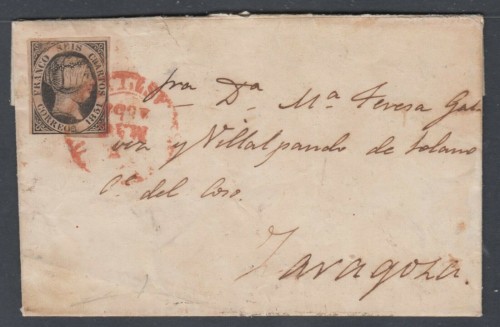 FRANCO SEIS CUARTOS
CORREOS 1851
Sra Dª Mª Teresa Gal
vez y Villalpando de Solano
Cª del Coso.
Zaragoza.